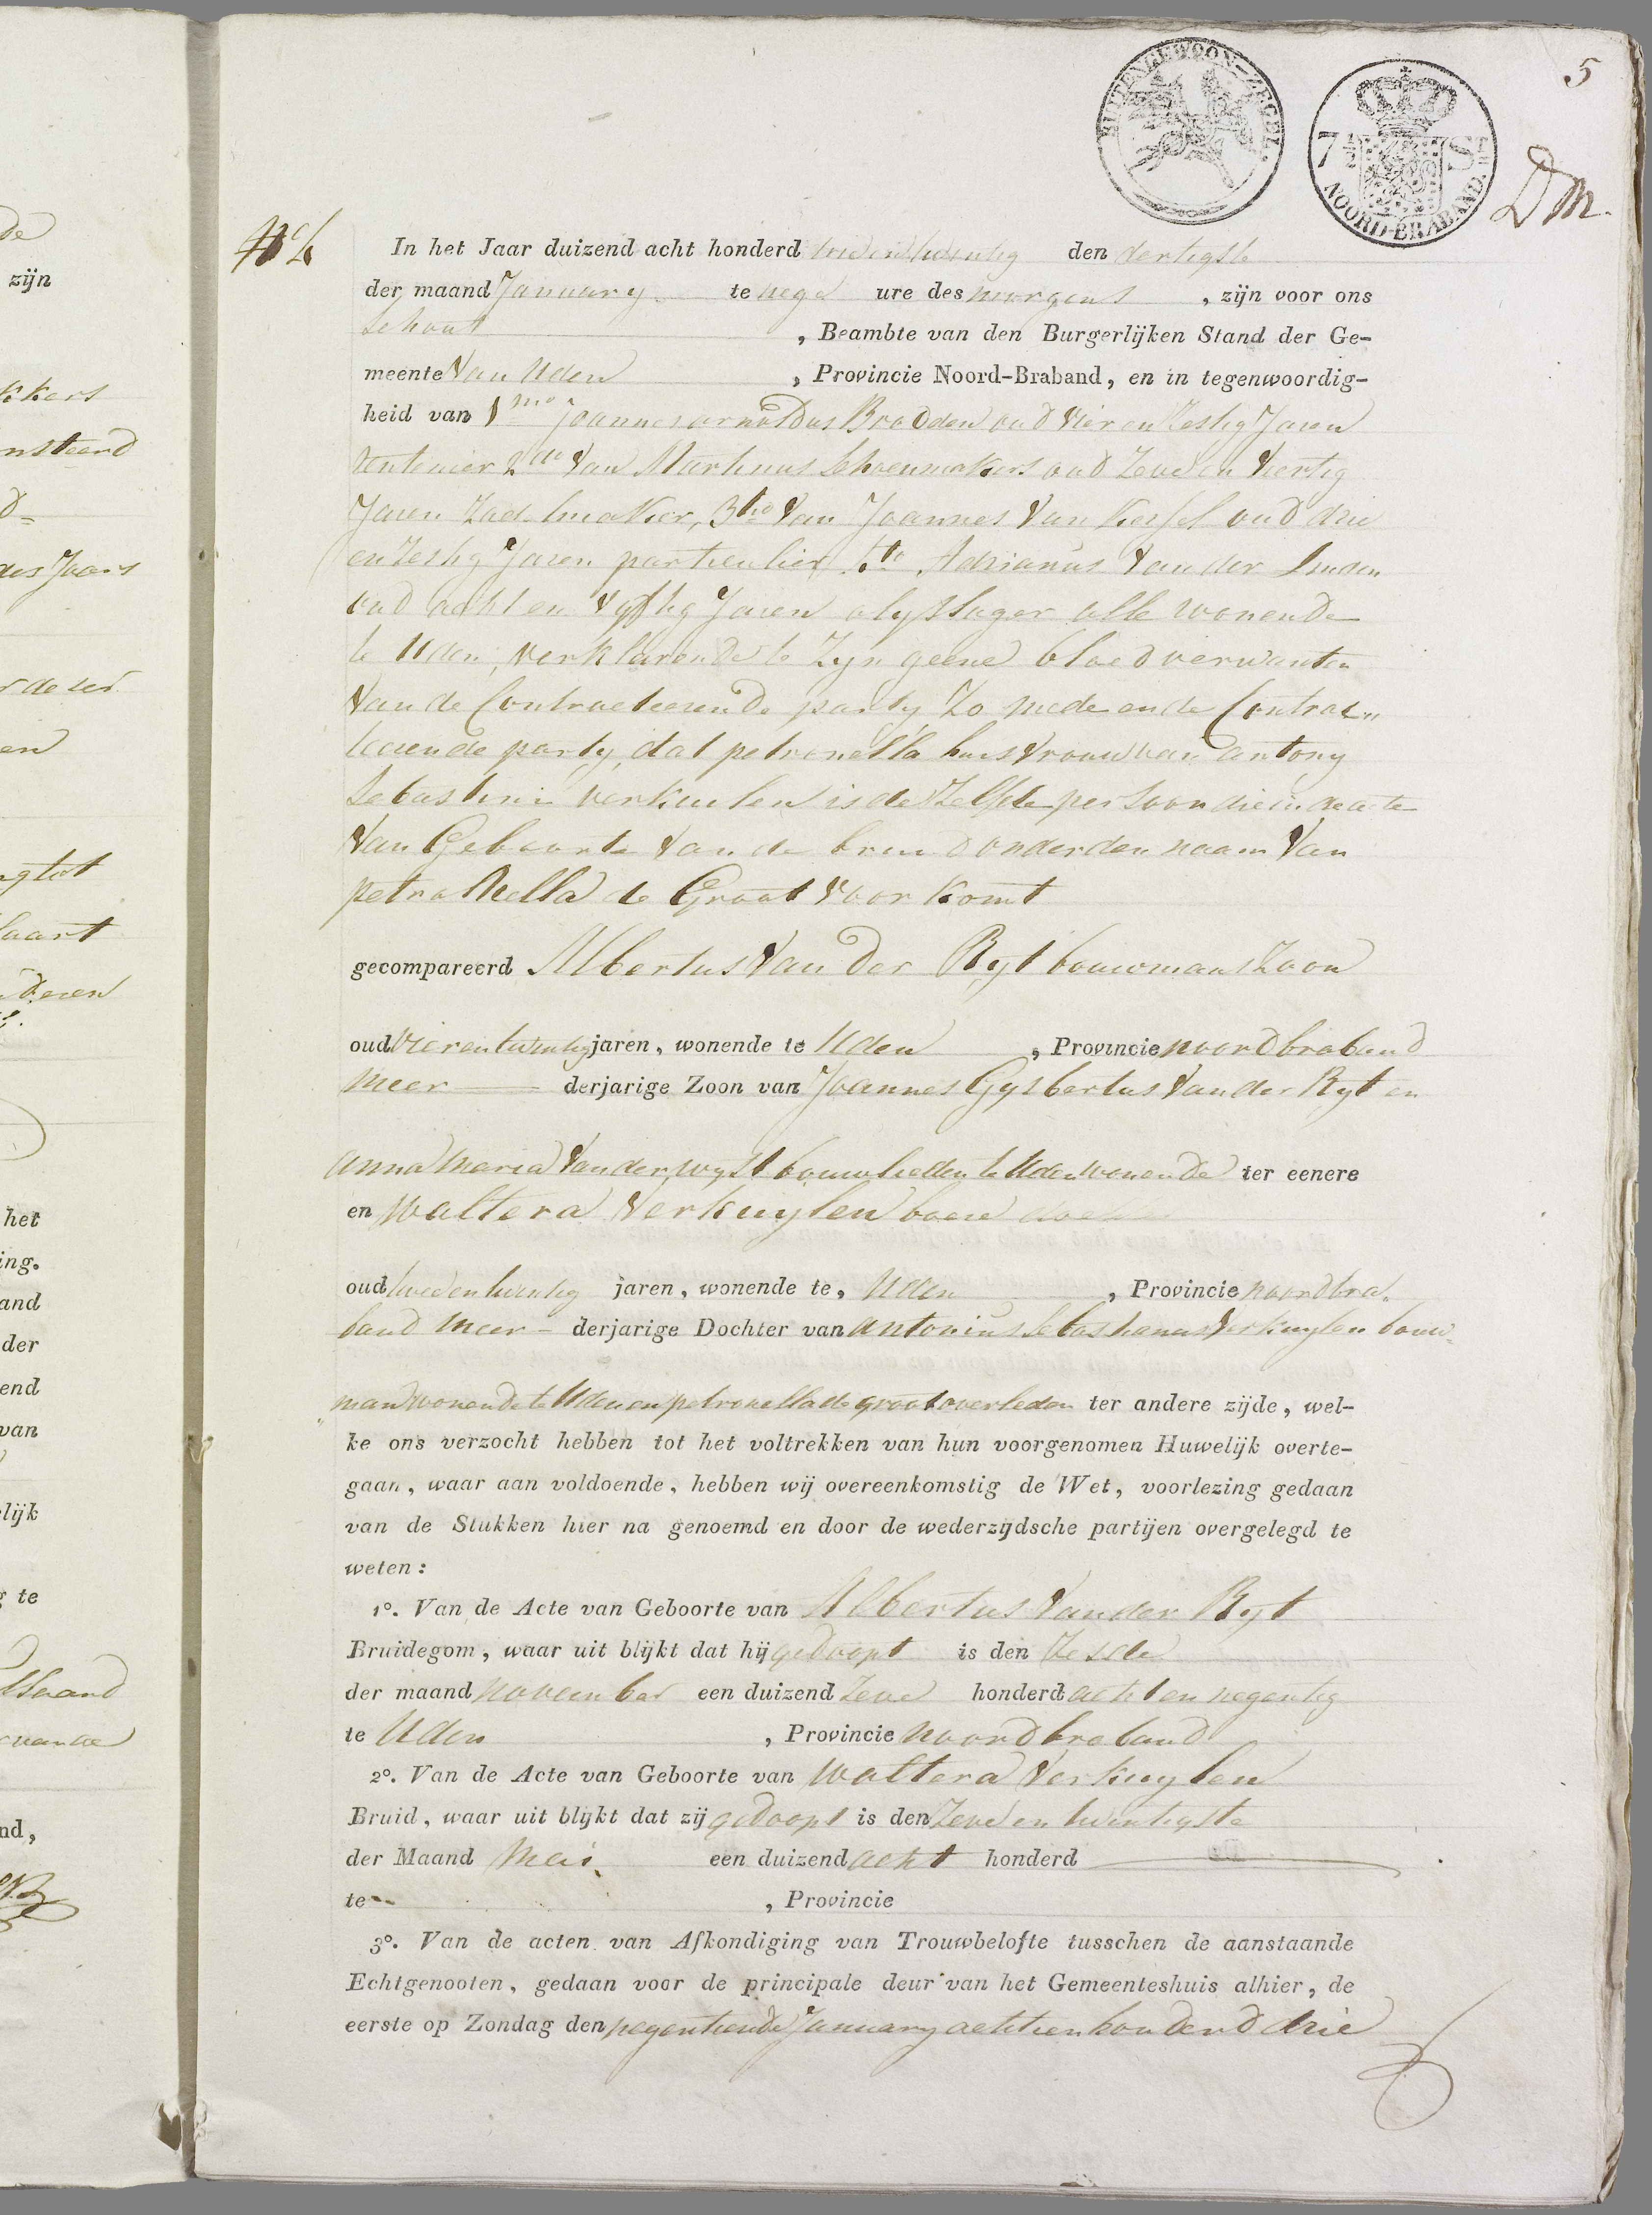 de
zijn
kkers
nsteend
d=
des Jaars
r de ses
en
ngtot
laart
deren
het
ing.
and
der
end
van
lijk
g te
nd,
5
BUITENGEWOON-ZEGEL.
7 1/2 ST
NOORD-BRABAND.
DM.
N° 4
In het Jaar duizend acht honderd drie en twintig den dertigste
der maand January te nege ure des morgens , zijn voor ons
Schout , Beambte van den Burgerlijken Stand der Ge-
meente van Uden , Provincie Noord-Braband, en in tegenwoordig-
heid van 1mo Joannes arnoldus Brodden oud vier en zestig Jaren
rentenier 2do van Martinus Schoenmakers oud zeve en veertig
Jaren Zadelmaker, 3tio van Joannes van Kessel oud drie
en zestig Jaren particulier 4to Adrianus van der Linden
oud acht en vyftig Jaren olyslager alle wonende
te Uden, verklarende te zyn geene bloedverwanten
van de Contracteerende party zo mede en de Contrac„
teerende party, dat petronella huisvrouw van antony
Sebastini verkuilen is de zelfde persoon die in de acte
van Geboorte van de bruid onder den naam van
petronella de Groot voor komt
gecompareerd Albertus van der Ryt bouwmans zoon
oud vier en twintig jaren, wonende te Uden , Provincie noordbraband
meer derjarige Zoon van Joannes Gysbertus van der Ryt en
anna maria van der wyst bouwlieden te Uden wonende ter eenere
en Waltera Verkuylen boere
oud twee en twintig jaren, wonende te, Uden , Provincie noordbra„
band meer - derjarige Dochter van antonius Sebastianus Verkuylen bouw„
„man wonende te Uden en petronella de groot overleden ter andere zijde, wel-
ke ons verzocht hebben tot het voltrekken van hun voorgenomen Huwelijk overte-
gaan, waar aan voldoende, hebben wij overeenkomstig de Wet, voorlezing gedaan
van de Stukken hier na genoemd en door de wederzijdsche partijen overgelegd te
weten:
1°. Van de Acte van Geboorte van Albertus van der Ryt
Bruidegom, waar uit blijkt dat hij gedoopt is den zesde
der maand november een duizend zeve honderd acht en negentig
te Uden , Provincie noordbraband
2°. Van de Acte van Geboorte van Waltera Verkuylen
Bruid, waar uit blijkt dat zij gedoopt is den zeve en twintigste
der Maand Mei een duizend acht honderd
te , Provincie
3°. Van de acten van Afkondiging van Trouwbelofte tusschen de aanstaande
Echtgenooten, gedaan voor de principale deur van het Gemeenteshuis alhier, de
eerste op Zondag den negentiende January achttien honderd drie